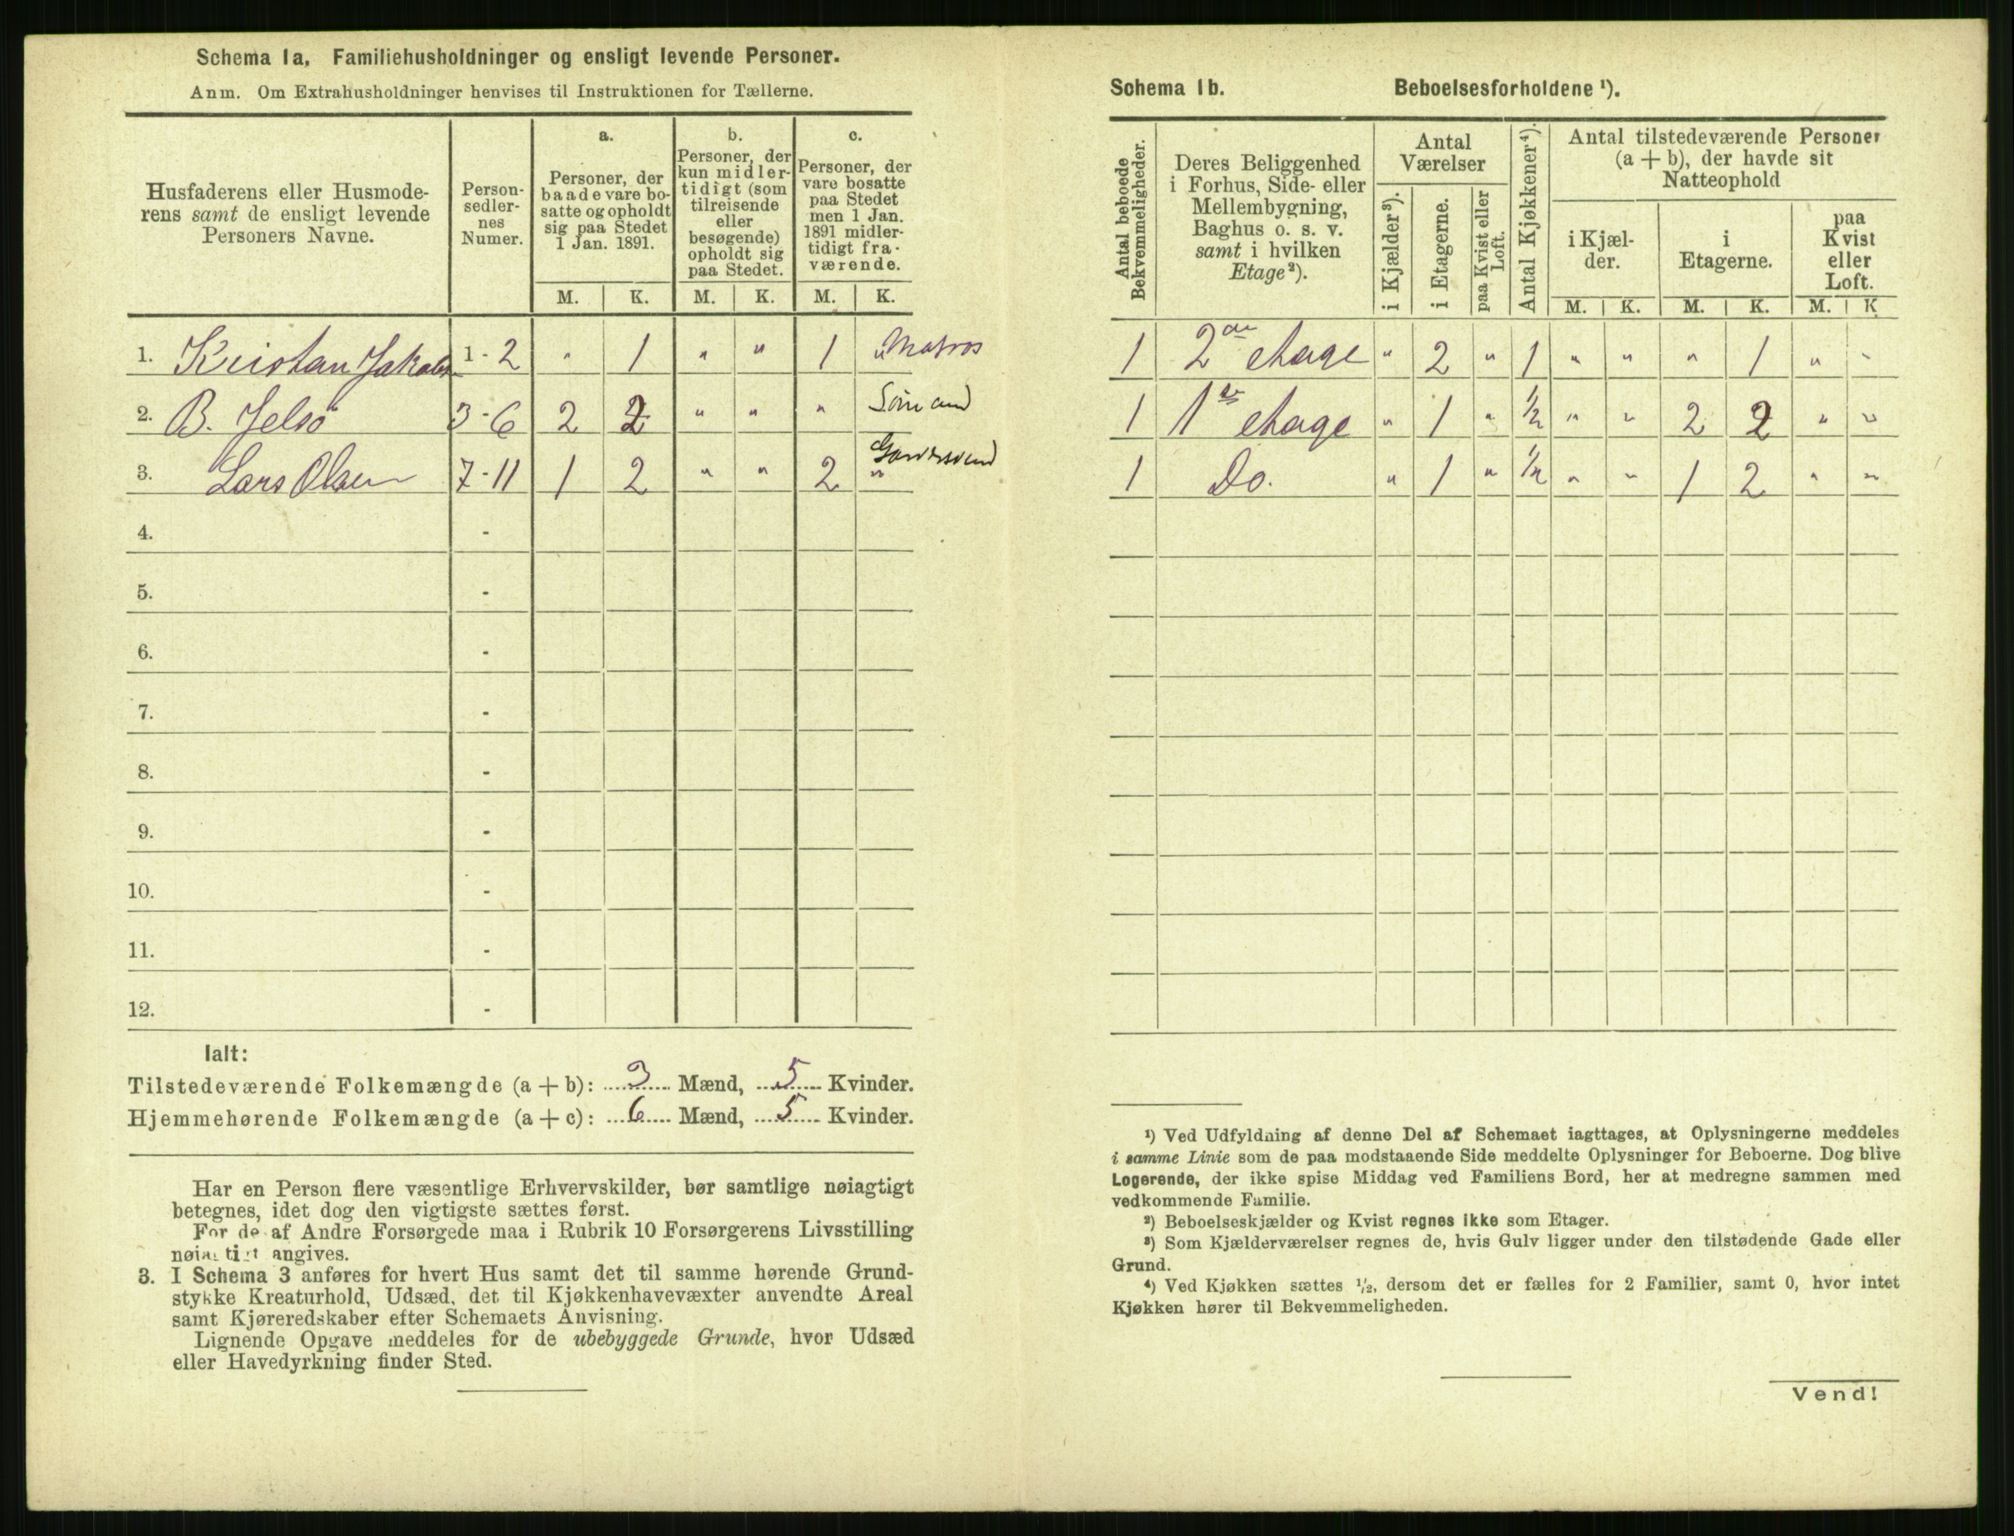 Schema 1a, Familiehusholdninger og ensligt levende Personer.
Anm. Om Extrahusholdninger henvises til Instruktionen for Tællerne.
Husfaderens eller Husmode-
rens samt de ensligt levende
Personers Navne.
Person-
sedler-
nes
Numer.
a.
Personer, der
baade vare bo-
satte og opholdt
sig paa Stedet
1 Jan. 1891.
b.
Personer, der
kun midler-
tidigt (som
tilreisende
eller
besøgende)
opholdt sig
paa Stedet.
c.
Personer, der
vare bosatte
paa Stedet
men 1 Jan.
1891 midler-
tidigt fra-
værende.
M. K. M. K. M. K.
1. Kristan Jakobs 1 - 2 " 1 " " 1 " Matros
2. B. Jelsø 3 - 6 2 2 " " " Sömand
3. Lars Olsen 7 - 11 1 2 " " 2 " Garversvend
4. -
5. -
6. -
7. -
8. -
9. -
10. -
11. -
12. -
Ialt:
Tilstedeværende Folkemængde (a + b): 3 Mænd, 5 Kvinder.
Hjemmehørende Folkemængde (a + c): 6 Mænd, 5 Kvinder.
Har en Person flere væsentlige Erhvervskilder, bør samtlige nøiagtigt
betegnes, idet dog den vigtigste sættes først.
For de af Andre Forsørgede maa i Rubrik 10 Forsørgerens Livsstilling
nøiagtigt angives.
3. I Schema 3 anføres for hvert Hus samt det til samme hørende Grund-
stykke Kreaturhold, Udsæd, det til Kjøkkenhavevæxter anvendte Areal
samt Kjøreredskaber efter Schemaets Anvisning.
Lignende Opgave meddeles for de ubebyggede Grunde, hvor Udsæd
eller Havedyrkning finder Sted.
Schema 1b. Beboelsesforholdene ¹).
Antal beboede
Bekvemmeligheder.
Deres Beliggenhed
i Forhus, Side- eller
Mellembygning,
Baghus o. s. v.
samt i hvilken
Etage²).
Antal
Værelser
i Kjælder³).
i Etagerne.
paa Kvist eller
Loft.
Antal Kjøkkener⁴).
Antal tilstedeværende Personer
(a + b), der havde sit
Natteophold
i Kjæl-
der.
i
Etagerne.
paa
Kvist
eller
Loft.
M. K. M. K. M. K
1 2den etage " 2 " 1 " " " 1 " "
1 1ste etage " 1 " 1/2 " " 2 2 " "
1 Do. " 1 " 1/2 " " 1 2 " "
¹) Ved Udfyldning af denne Del af Schemaet iagttages, at Oplysningerne meddeles
i samme Linie som de paa modstaaende Side meddelte Oplysninger for Beboerne. Dog blive
Logerende, der ikke spise Middag ved Familiens Bord, her at medregne sammen med
vedkommende Familie.
²) Beboelseskjælder og Kvist regnes ikke som Etager.
³) Som Kjælderværelser regnes de, hvis Gulv ligger under den tilstødende Gade eller
Grund.
⁴) Ved Kjøkken sættes 1/2, dersom det er fælles for 2 Familier, samt 0, hvor intet
Kjøkken hører til Bekvemmeligheden.
Vend!